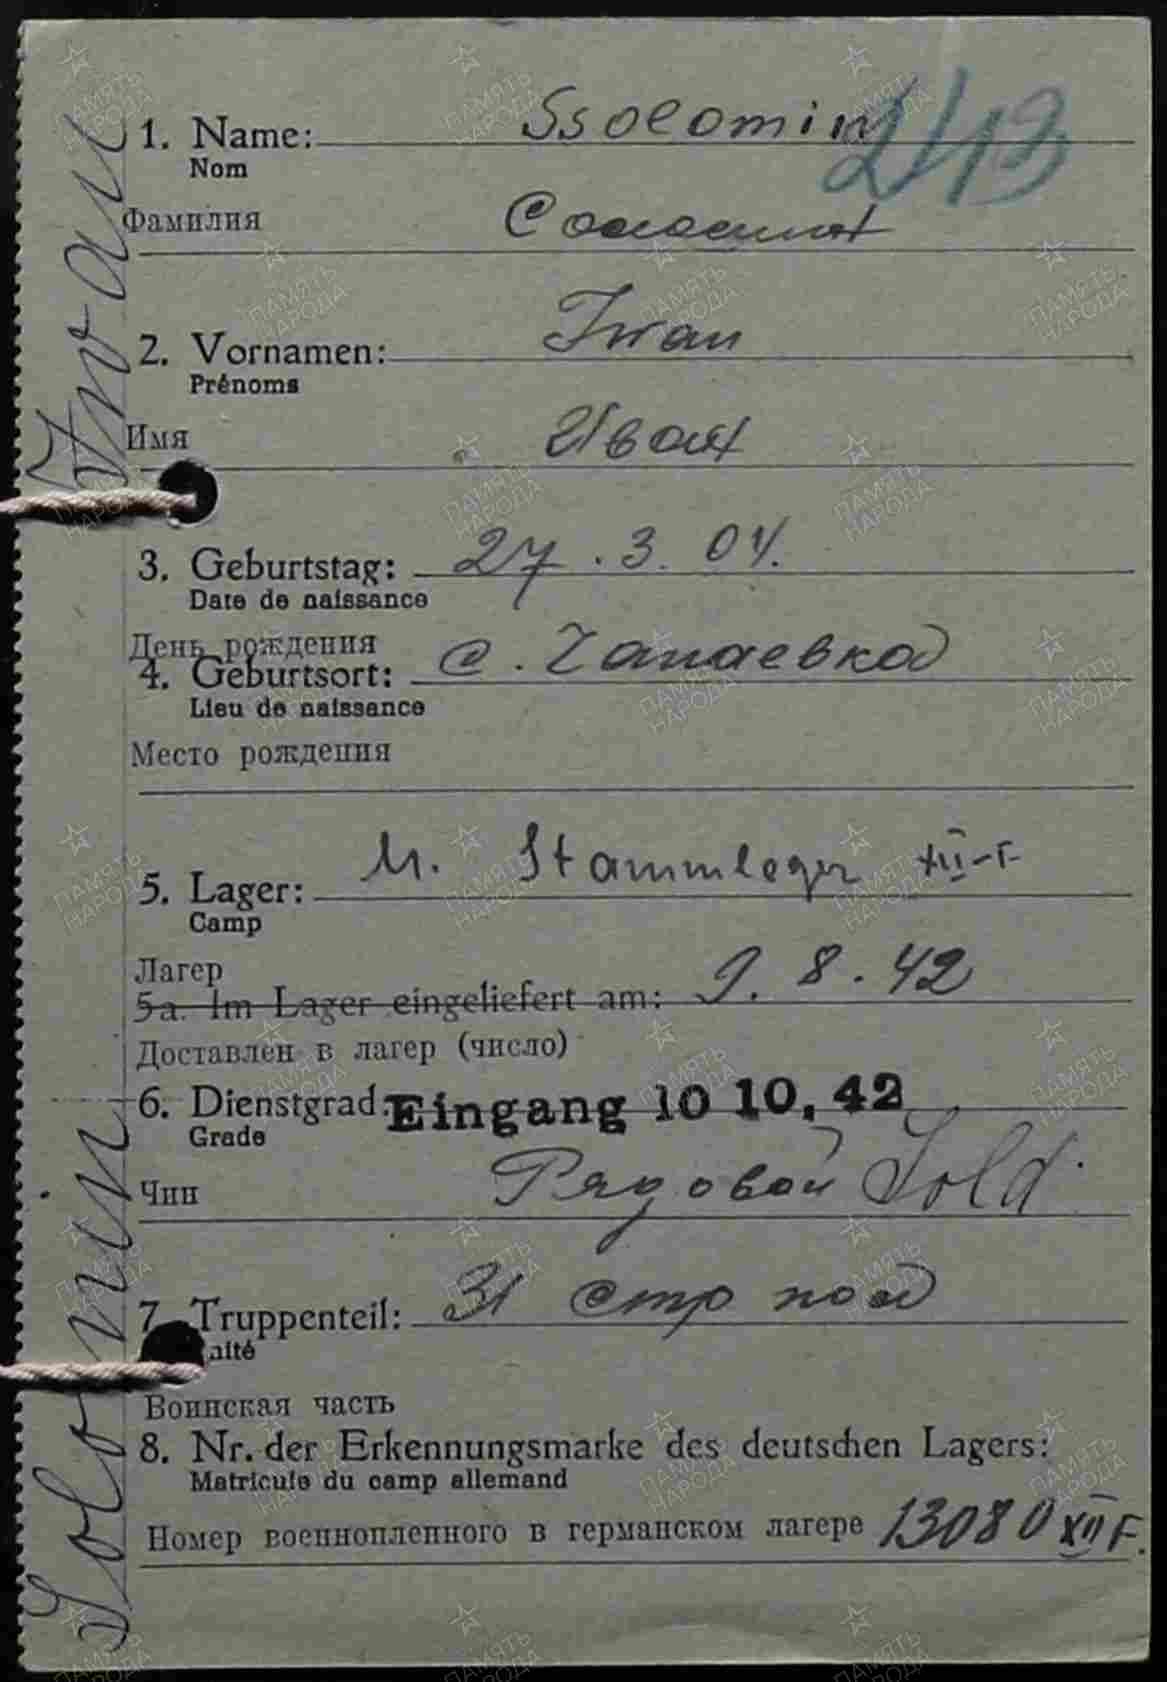 1. Name: Ssolomin
243
Nom
Фамилия Соломин
2. Vornamen: Iwan
Prénoms
Имя Иван
3. Geburtstag: 27.3.04.
Date de naissance
День рождения
4. Geburtsort: с. Чапаевка
Lieu de naissance
Место рождения
5. Lager: M. Stammlager XII-F
Camp
Лагер
5a. Im Lager eingeliefert am: 9.8.42
Доставлен в лагер (число)
6. Dienstgrad: Eingang 10 10, 42
Grade
Чин Рядовой Sold.
7. Truppenteil: 31 стр
Unité
Воинская часть
8. Nr. der Erkennungsmarke des deutschen Lagers:
Matricule du camp allemand
Номер военнопленного в германском лагере 13080 XII F.
Solomin Iwan
ПАМЯТЬ
НАРОДА